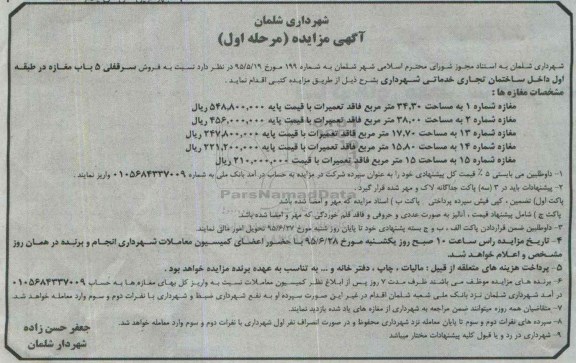 شهرداری شلمان
آگهی مزایده (مرحله اول)
شهرداری شلمان به استناد مجوز شورای محترم اسلامی شهر شلمان به شماره ۱۹۹ مورخ ۹۵/۵/۱۹ در نظر دارد نسبت به فروش سرقفلی ۵ باب مغازه در طبقه
اول داخل ساختمان تجاری خدماتی شهرداری بشرح ذیل از طریق مزایده کتبی اقدام نماید.
مشخصات مغازه ها :
مغازه شماره ۱ به مساحت ۳۴,۳۰ متر مربع فاقد تعمیرات با قیمت پایه ۵۴۸,۸۰۰,۰۰۰ ریال
مغازه شماره ۲ به مساحت ۳۸,۰۰ متر مربع فاقد تعمیرات با قیمت پایه ۴۵۶,۰۰۰,۰۰۰ ریال
مغازه شماره ۱۳ به مساحت ۱۷,۷۰ متر مربع فاقد تعمیرات با قیمت پایه ۲۴۷,۸۰۰,۰۰۰ ریال
مغازه شماره ۱۴ به مساحت ۱۵,۸۰ متر مربع فاقد تعمیرات با قیمت پایه ۲۲۱,۲۰۰,۰۰۰ ریال
مغازه شماره ۱۵ به مساحت ۱۵ متر مربع فاقد تعمیرات با قیمت پایه ۲۱۰,۰۰۰,۰۰۰ ریال
۱- داوطلبین می بایستی ۵ ٪ قیمت کل پیشنهادی خود را به عنوان سپرده شرکت در مزایده به حساب در آمد بانک ملی به شماره ۰۱۰۵۶۸۴۳۳۷۰۰۹ واریز نمایند .
۲- پیشنهادات باید در ۳ (سه) پاکت جداگانه لاک و مهر شده قرار گیرد .
پاکت اول) تضمین - کپی فیش سپرده پرداختی پاکت ب ) اسناد مزایده که مهر و امضا شده باشد
پاکت ج ) شامل پیشنهاد قیمت ، آنالیز به صورت عددی و حروفی و فاقد قلم خوردگی که مهر و امضا شده باشد
۳- داوطلبین ضمن قراردادن پاکت الف ، ب و ج بسته پشنهادی خود تا پایان روز شنبه مورخ ۹۵/۶/۲۷ تحویل امور مالی نمایند.
۴- تاریخ مزایده راس ساعت ۱۰ صبح روز یکشنبه مورخ ۹۵/۶/۲۸ با حضور اعضای کمیسیون معاملات شهرداری انجام و برنده در همان روز
مشخص و اعلام خواهد شد.
۵- پرداخت هزینه های متعلقه از قبیل : مالیات ، چاپ ، دفتر خانه و ... به تناسب به عهده برنده مزایده خواهد بود .
۶- برنده های مزایده موظف می باشند ظرف مدت ۷ روز پس از ابلاغ نظر کمیسیون معاملات نسبت به واریز کل بهای مغازه ها به حساب ۰۱۰۵۶۸۴۳۳۷۰۰۹
در آمد شهرداری شلمان نزد بانک ملی شعبه شلمان اقدام در غیر این صورت سپرده او به نفع شهرداری ضبط و شهرداری با نفرات دوم و سوم وارد معامله خواهد شد
۷- متقاضیان همه روزه میتوانند ضمن مراجعه به شهرداری از مغازه های یاد شده بازدید نمایند.
۸- سپرده های نفرات دوم و سوم تا پایان معامله نزد شهرداری محفوظ و در صورت انصراف نفر اول شهرداری با نفرات دوم و سوم وارد معامله خواهد شد.
۹- شهرداری در رد و یا قبول کلیه پیشنهادات مختار میباشد
جعفر حسن زاده
شهردار شلمان
ParsNamadData